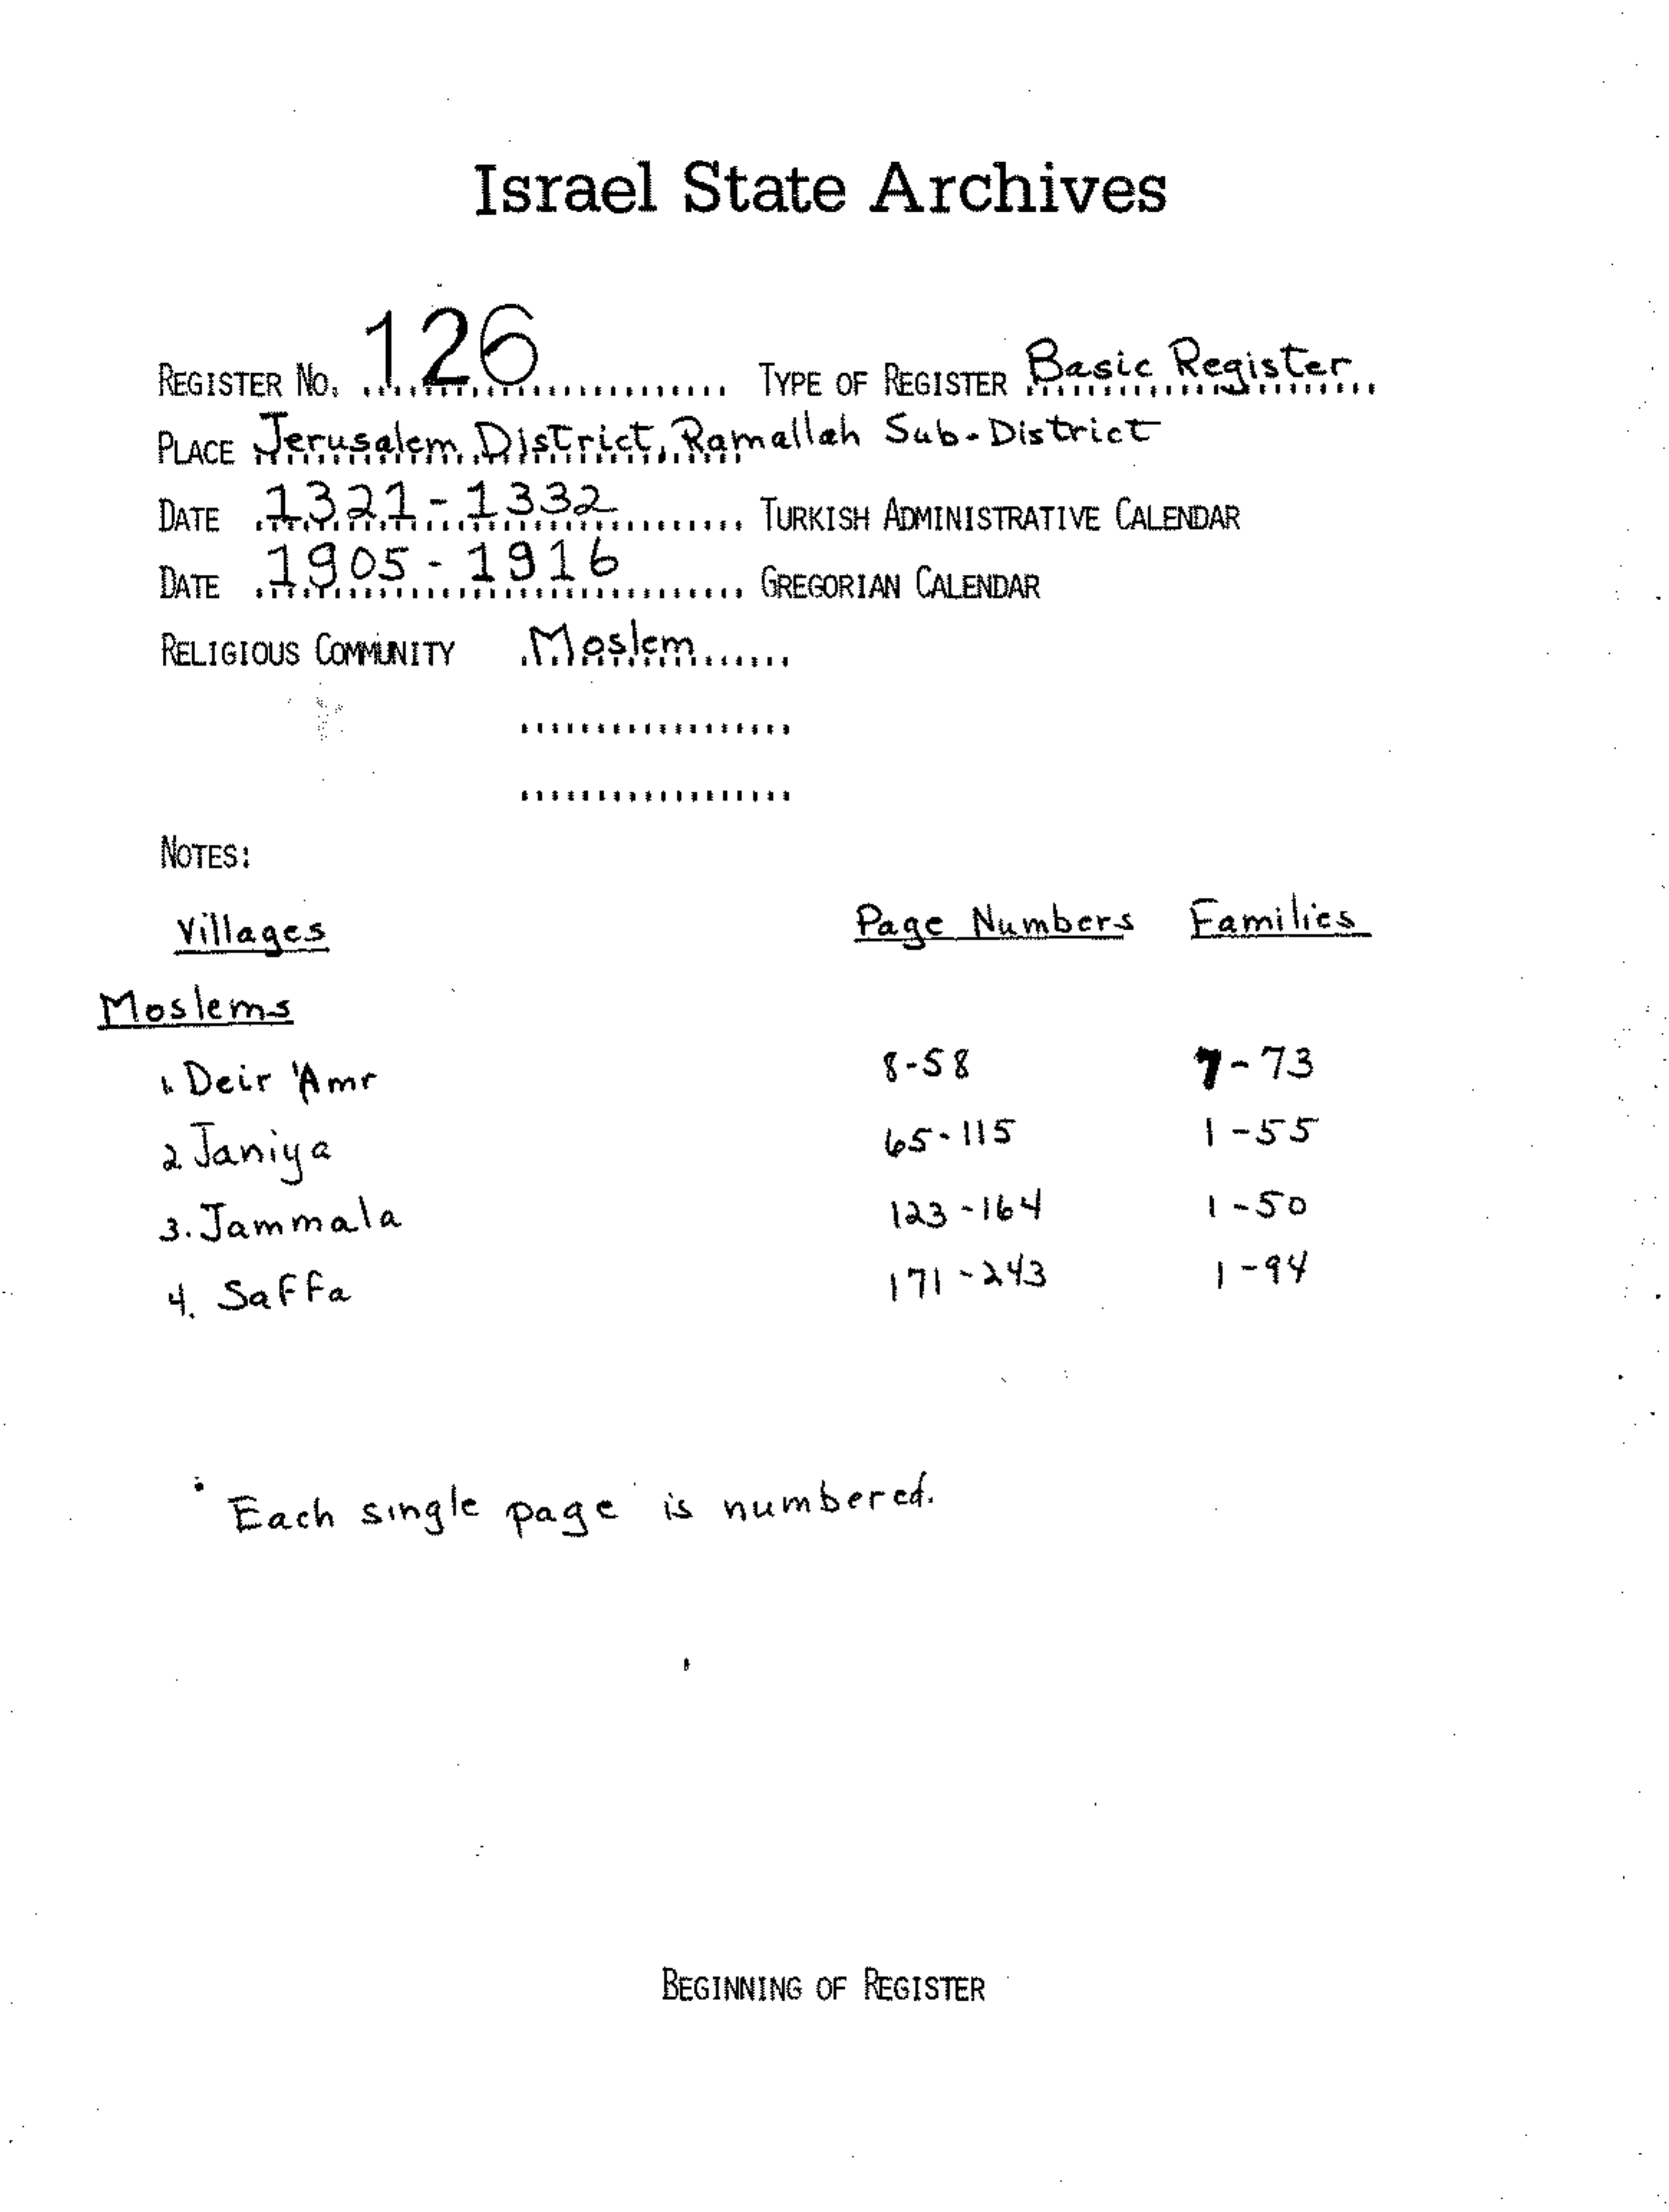 Israel State Archives
REGISTER NO. 126 TYPE OF REGISTER Basic Register
PLACE Jerusalem District, Ramallah Sub-District
DATE 1321-1332 TURKISH ADMINISTRATIVE CALENDAR
DATE 1905-1916 GREGORIAN CALENDAR
RELIGIOUS COMMUNITY Moslem
NOTES:
Villages Page Numbers Families
Moslems
1. Deir 'Amr 8-58 7-73
2 Janiya 65-115 1-55
3. Jammala 123-164 1-50
4. Saffa 171-243 1-94
Each single page is numbered.
BEGINNING OF REGISTER